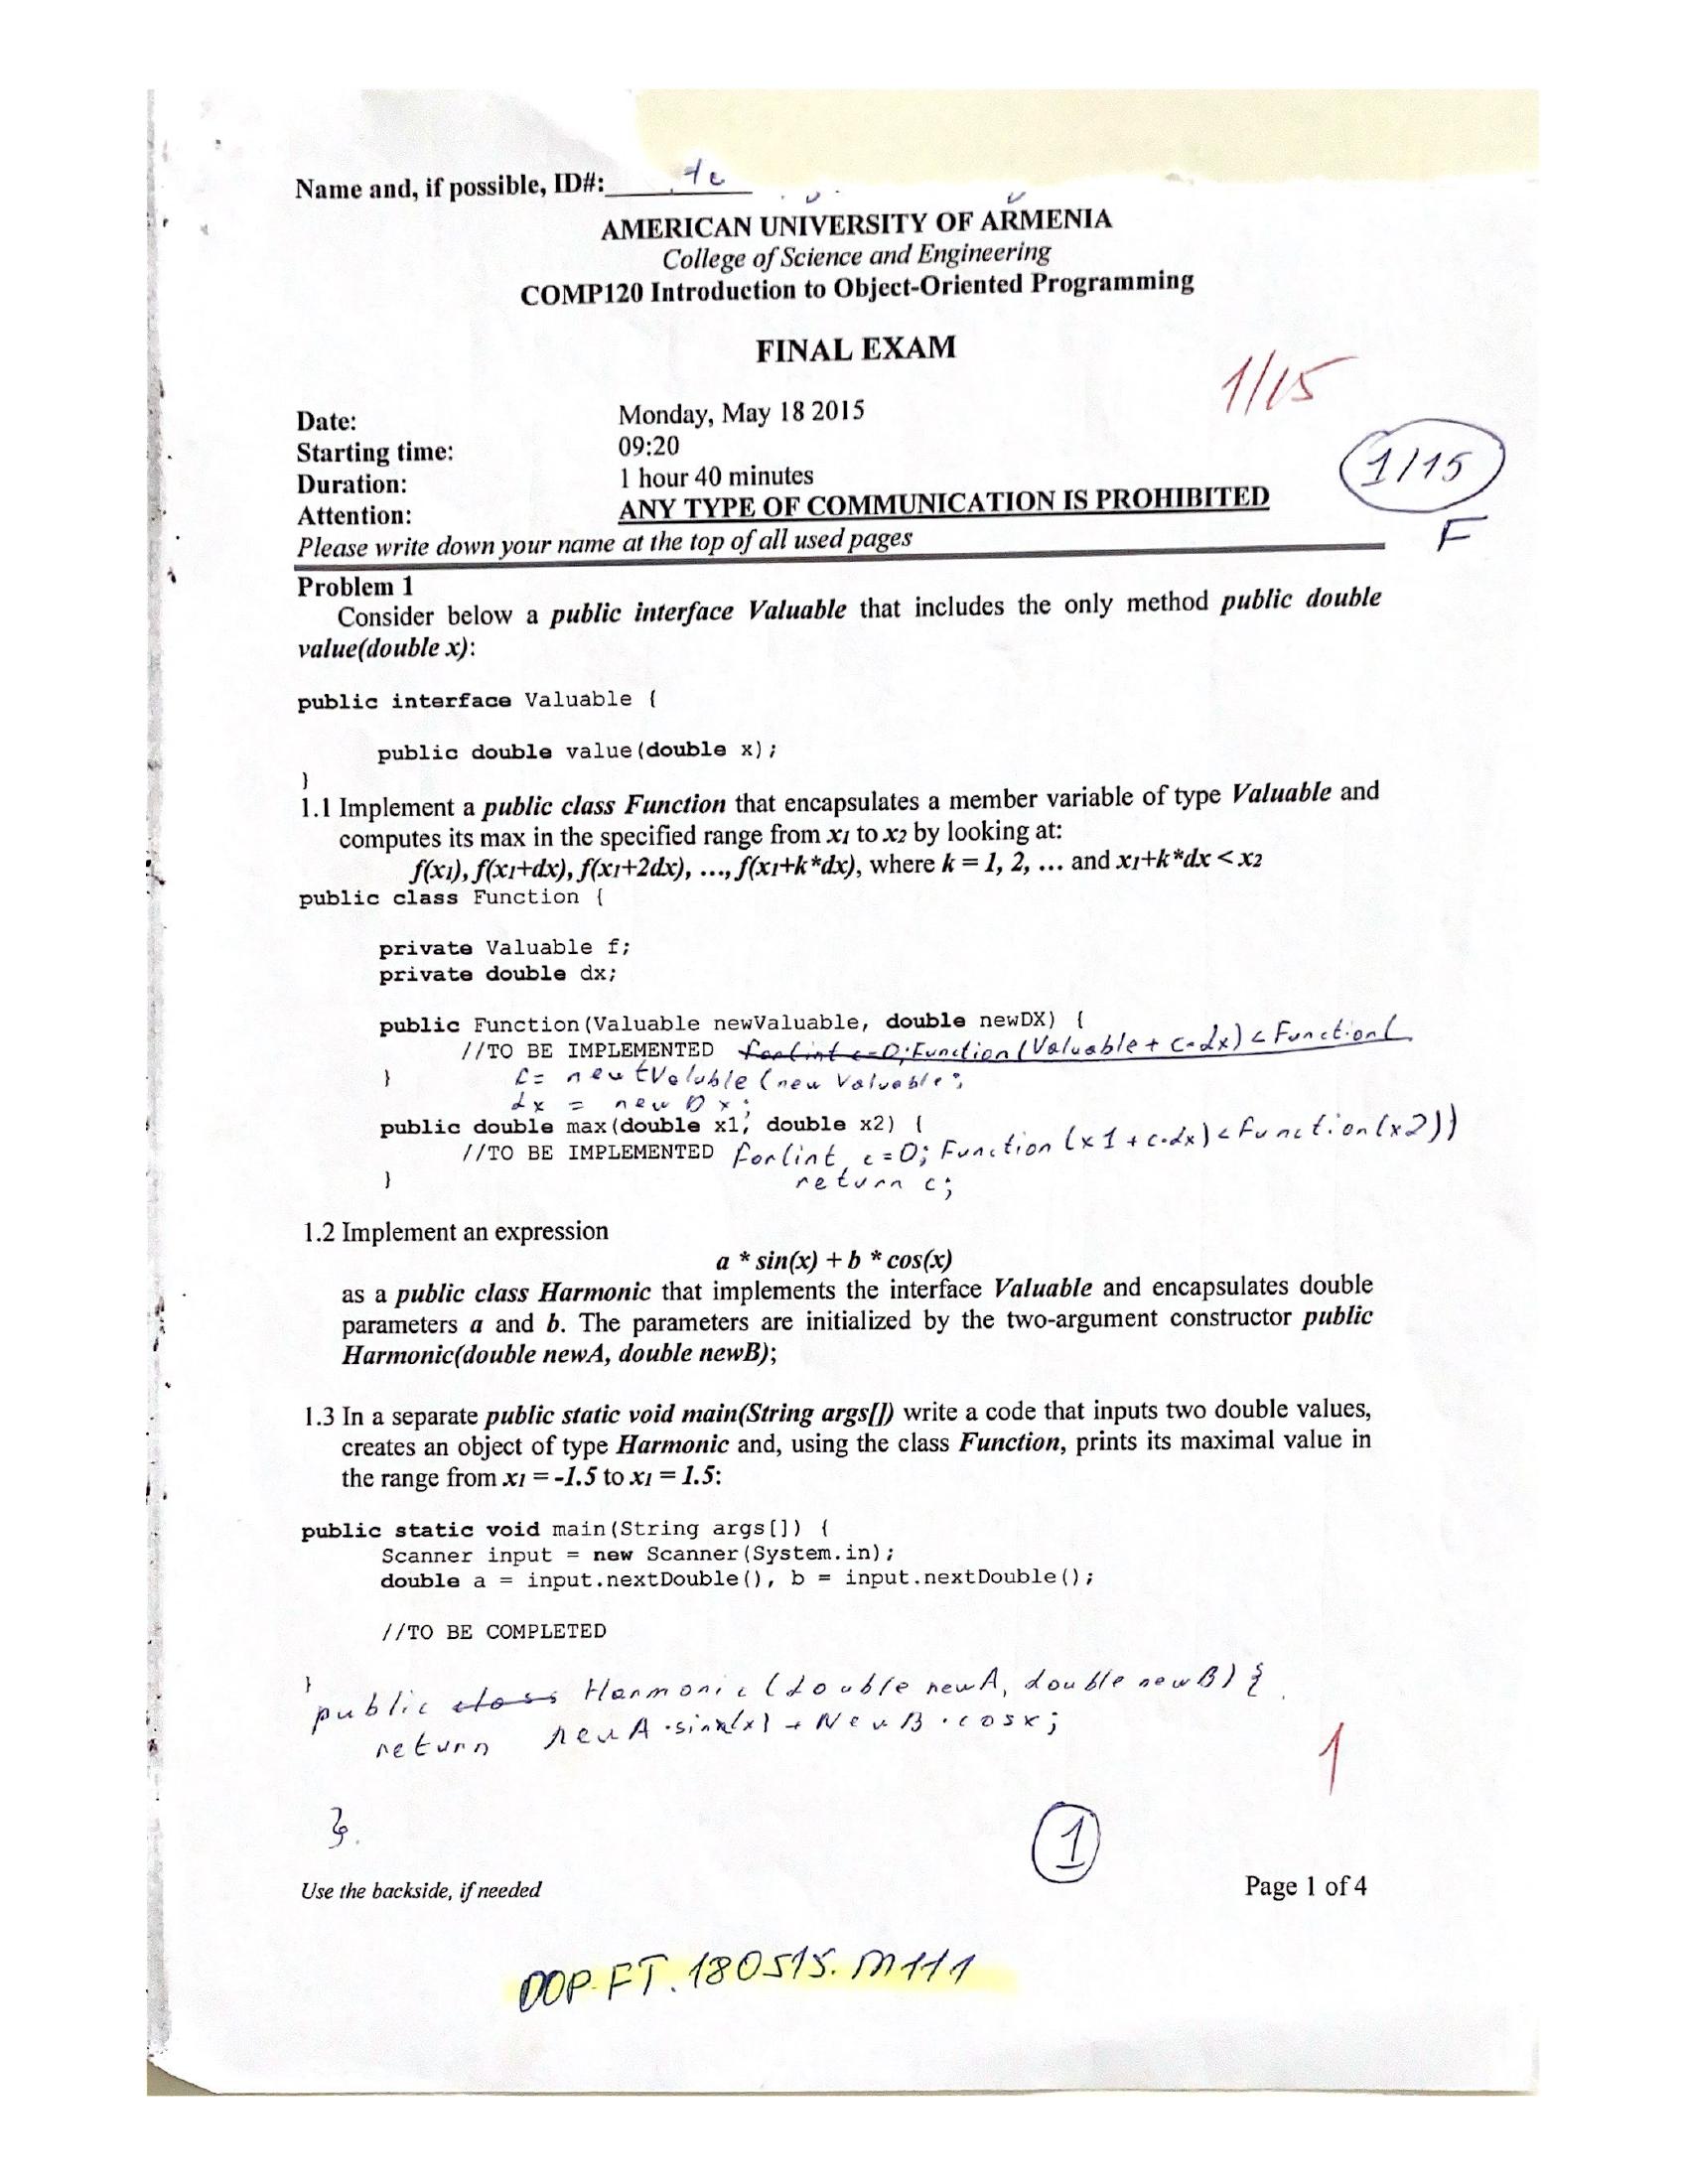 Name and, if possible, ID#:
AMERICAN UNIVERSITY OF ARMENIA
College of Science and Engineering
COMP120 Introduction to Object-Oriented Programming
FINAL EXAM
1/15
Date: Monday, May 18 2015
Starting time: 09:20
1/15
Duration: 1 hour 40 minutes
Attention: ANY TYPE OF COMMUNICATION IS PROHIBITED
F
Please write down your name at the top of all used pages
Problem 1
Consider below a public interface Valuable that includes the only method public double
value(double x):
public interface Valuable {
public double value(double x);
}
1.1 Implement a public class Function that encapsulates a member variable of type Valuable and
computes its max in the specified range from x1 to x2 by looking at:
f(x1), f(x1+dx), f(x1+2dx), ..., f(x1+k*dx), where k = 1, 2, ... and x1+k*dx < x2
public class Function {
private Valuable f;
private double dx;
public Function(Valuable newValuable, double newDX) {
//TO BE IMPLEMENTED for(int c=0; Function(Valuable + c·dx) < Function(
} f = new tValuble (new Valuable;
dx = new Dx;
public double max(double x1, double x2) {
//TO BE IMPLEMENTED for(int c=0; Function (x1 + c·dx) < function(x2))
} return c;
1.2 Implement an expression
a * sin(x) + b * cos(x)
as a public class Harmonic that implements the interface Valuable and encapsulates double
parameters a and b. The parameters are initialized by the two-argument constructor public
Harmonic(double newA, double newB);
1.3 In a separate public static void main(String args[]) write a code that inputs two double values,
creates an object of type Harmonic and, using the class Function, prints its maximal value in
the range from x1 = -1.5 to x1 = 1.5:
public static void main(String args[]) {
Scanner input = new Scanner(System.in);
double a = input.nextDouble(), b = input.nextDouble();
//TO BE COMPLETED
}
public class Harmonic (double newA, double newB) {
return newA·sin(x) + NewB·cosx;
1
}.
1
Use the backside, if needed Page 1 of 4
OOP.FT.180515.M111